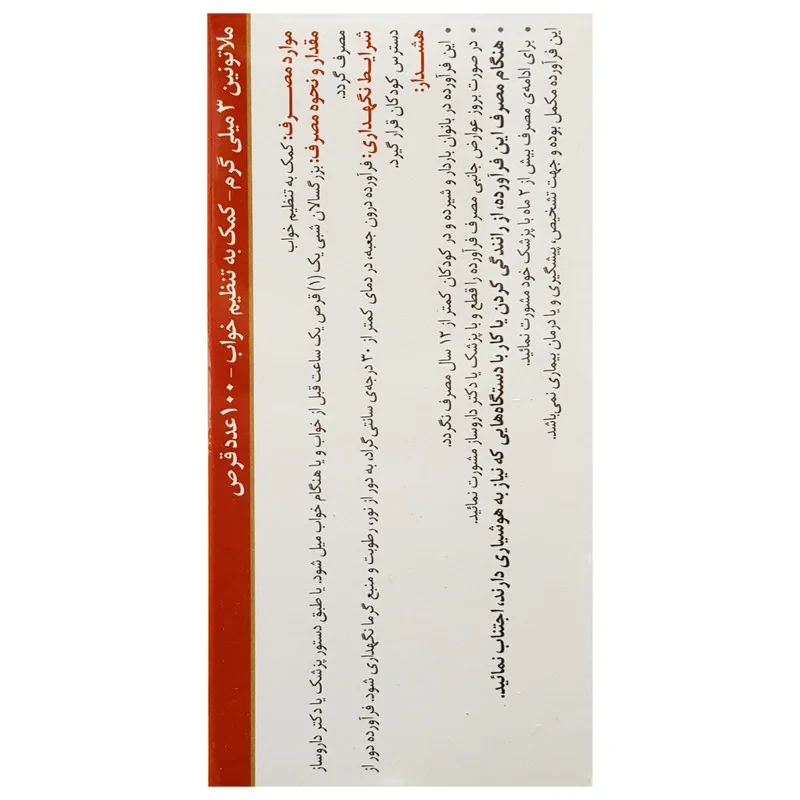 ملاتونین ۳ میلی گرم - کمک به تنظیم خواب - ۱۰۰ عدد قرص
موارد مصـــرف: کمک به تنظیم خواب
مقدار و نحوه مصرف: بزرگسالان شبی یک (۱) قرص یک ساعت قبل از خواب و یا هنگام خواب میل شود. یا طبق دستور پزشک یا دکتر داروساز
مصرف گردد.
شرایط نگهـداری: فرآورده درون جعبه، در دمای کمتر از ۳۰ درجه‌ی سانتی‌گراد، به دور از نور، رطوبت و منبع گرما نگهداری شود. فرآورده دور از
دسترس کودکان قرار گیرد.
هشــدار:
• این فرآورده در بانوان باردار و شیرده و در کودکان کمتر از ۱۲ سال مصرف نگردد.
• در صورت بروز عوارض جانبی مصرف فرآورده را قطع و با پزشک یا دکتر داروساز مشورت نمائید.
• هنگام مصرف این فرآورده، از رانندگی کردن یا کار با دستگاه‌هایی که نیاز به هوشیاری دارند، اجتناب نمائید.
• برای ادامه‌ی مصرف بیش از ۲ ماه با پزشک خود مشورت نمائید.
این فرآورده مکمل بوده و جهت تشخیص، پیشگیری و یا درمان بیماری نمی‌باشد.